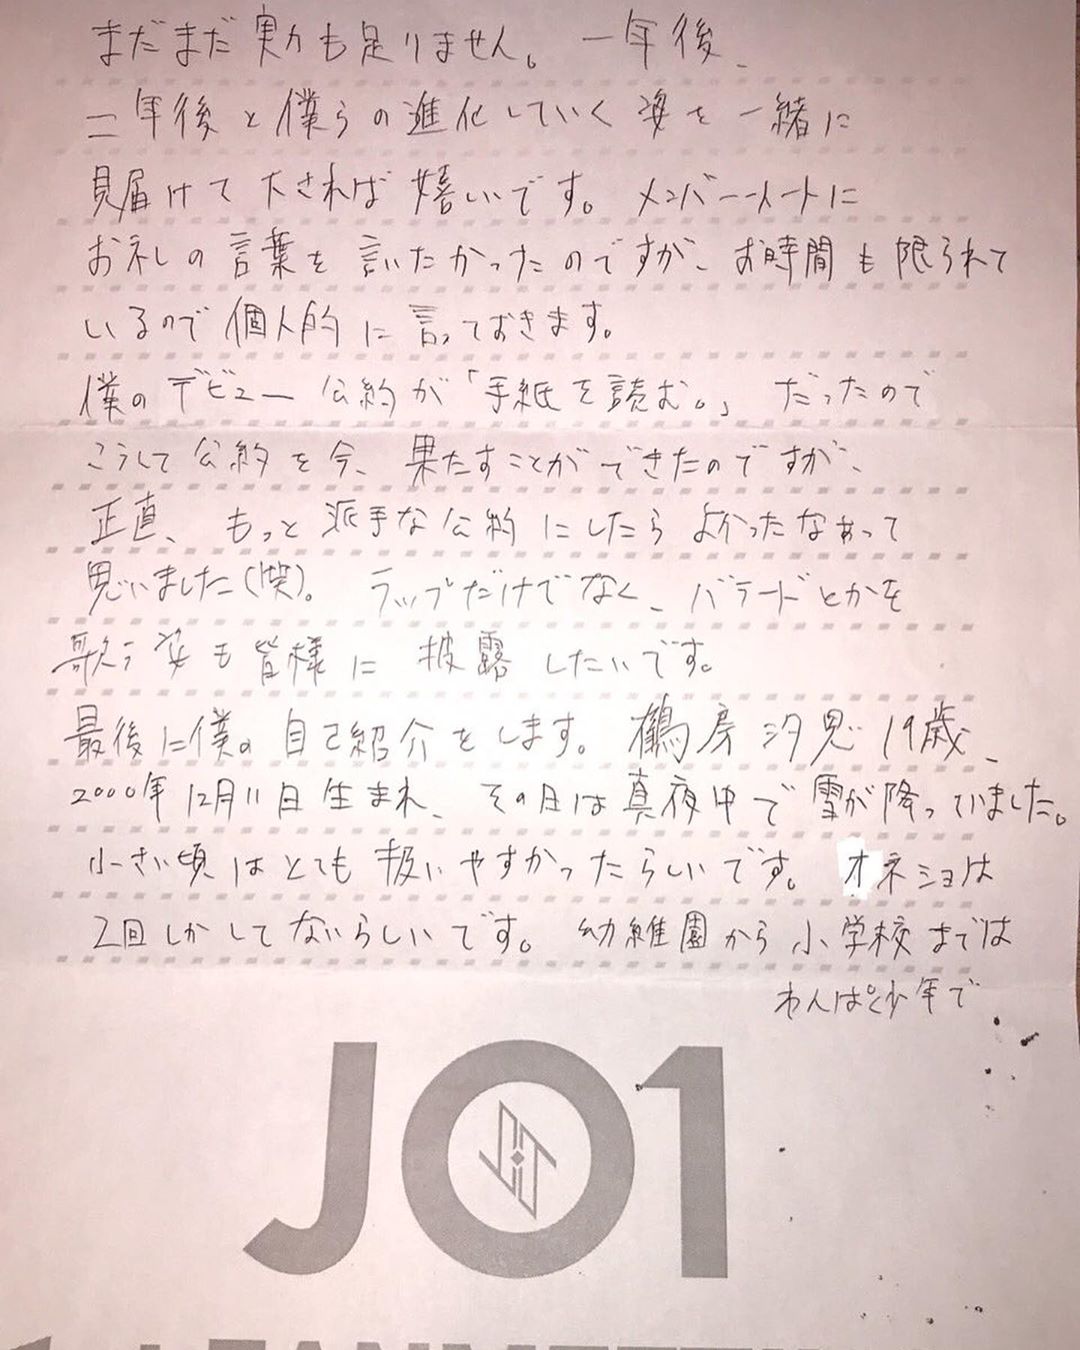 まだまだ実力も足りません。一年後、
二年後と僕らの進化していく姿を一緒に
見届けて下されば嬉いです。メンバー一人一人に
お礼の言葉を言いたかったのですが、お時間も限られて
いるので個人的に言っておきます。
僕のデビュー公約が「手紙を読む。」だったので
こうして公約を今、果たすことができたのですが、
正直、もっと派手な公約にしたらよかったなぁって
思いました(笑)。ラップだけでなく、バラードとかを
歌う姿も皆様に披露したいです。
最後に僕の自己紹介をします。鶴房汐恩19歳、
2000年12月11日生まれ、その日は真夜中で雪が降っていました。
小さい頃はとても扱いやすかったらしいです。オネショは
2回しかしてないらしいです。幼稚園から小学校までは
わんぱく少年で
JO1